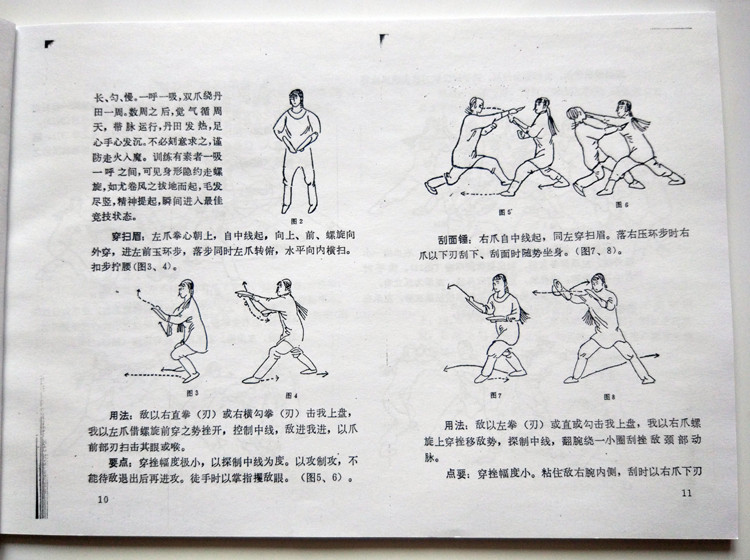 长、匀、慢。一呼一吸,双爪绕丹
田一周。数周之后,觉气循周
天,带脉运行,丹田发热,足
心手心发沉。不必刻意求之,谨
防走火入魔。训练有素者一吸
一呼之间,可见身形隐约走螺
旋,如尤卷风之拔地而起,毛发
尽竖,精神提起,瞬间进入最佳
竞技状态。
图2
穿扫眉:左爪拳心朝上,自中线起,向上、前、螺旋向
外穿,进左前玉环步,落步同时左爪转俯,水平向内横扫。
扣步拧腰(图3、4)。
图3
图4
用法:敌以右直拳(刃)或右横勾拳(刃)击我上盘,
我以左爪借螺旋前穿之势挫开,控制中线,敌进我进,以爪
前部刃扫击其眼或喉。
要点:穿挫幅度极小,以探制中线为度。以攻制攻,不
能待敌退出后再进攻。徒手时以掌指攫敌眼。(图5、6)。
10
图5
图6
刮面锤:右爪自中线起,同左穿扫眉。落右压环步时右
爪以下刃刮下、刮面时随势坐身。(图7、8)。
图7
图8
用法:敌以左拳(刃)或直或勾击我上盘,我以右爪螺
旋上穿挫移敌势,探制中线,翻腕绕一小圈刮挫敌颈部动
脉。
点要:穿挫幅度小。粘住敌右腕内侧,刮时以右爪下刃
11